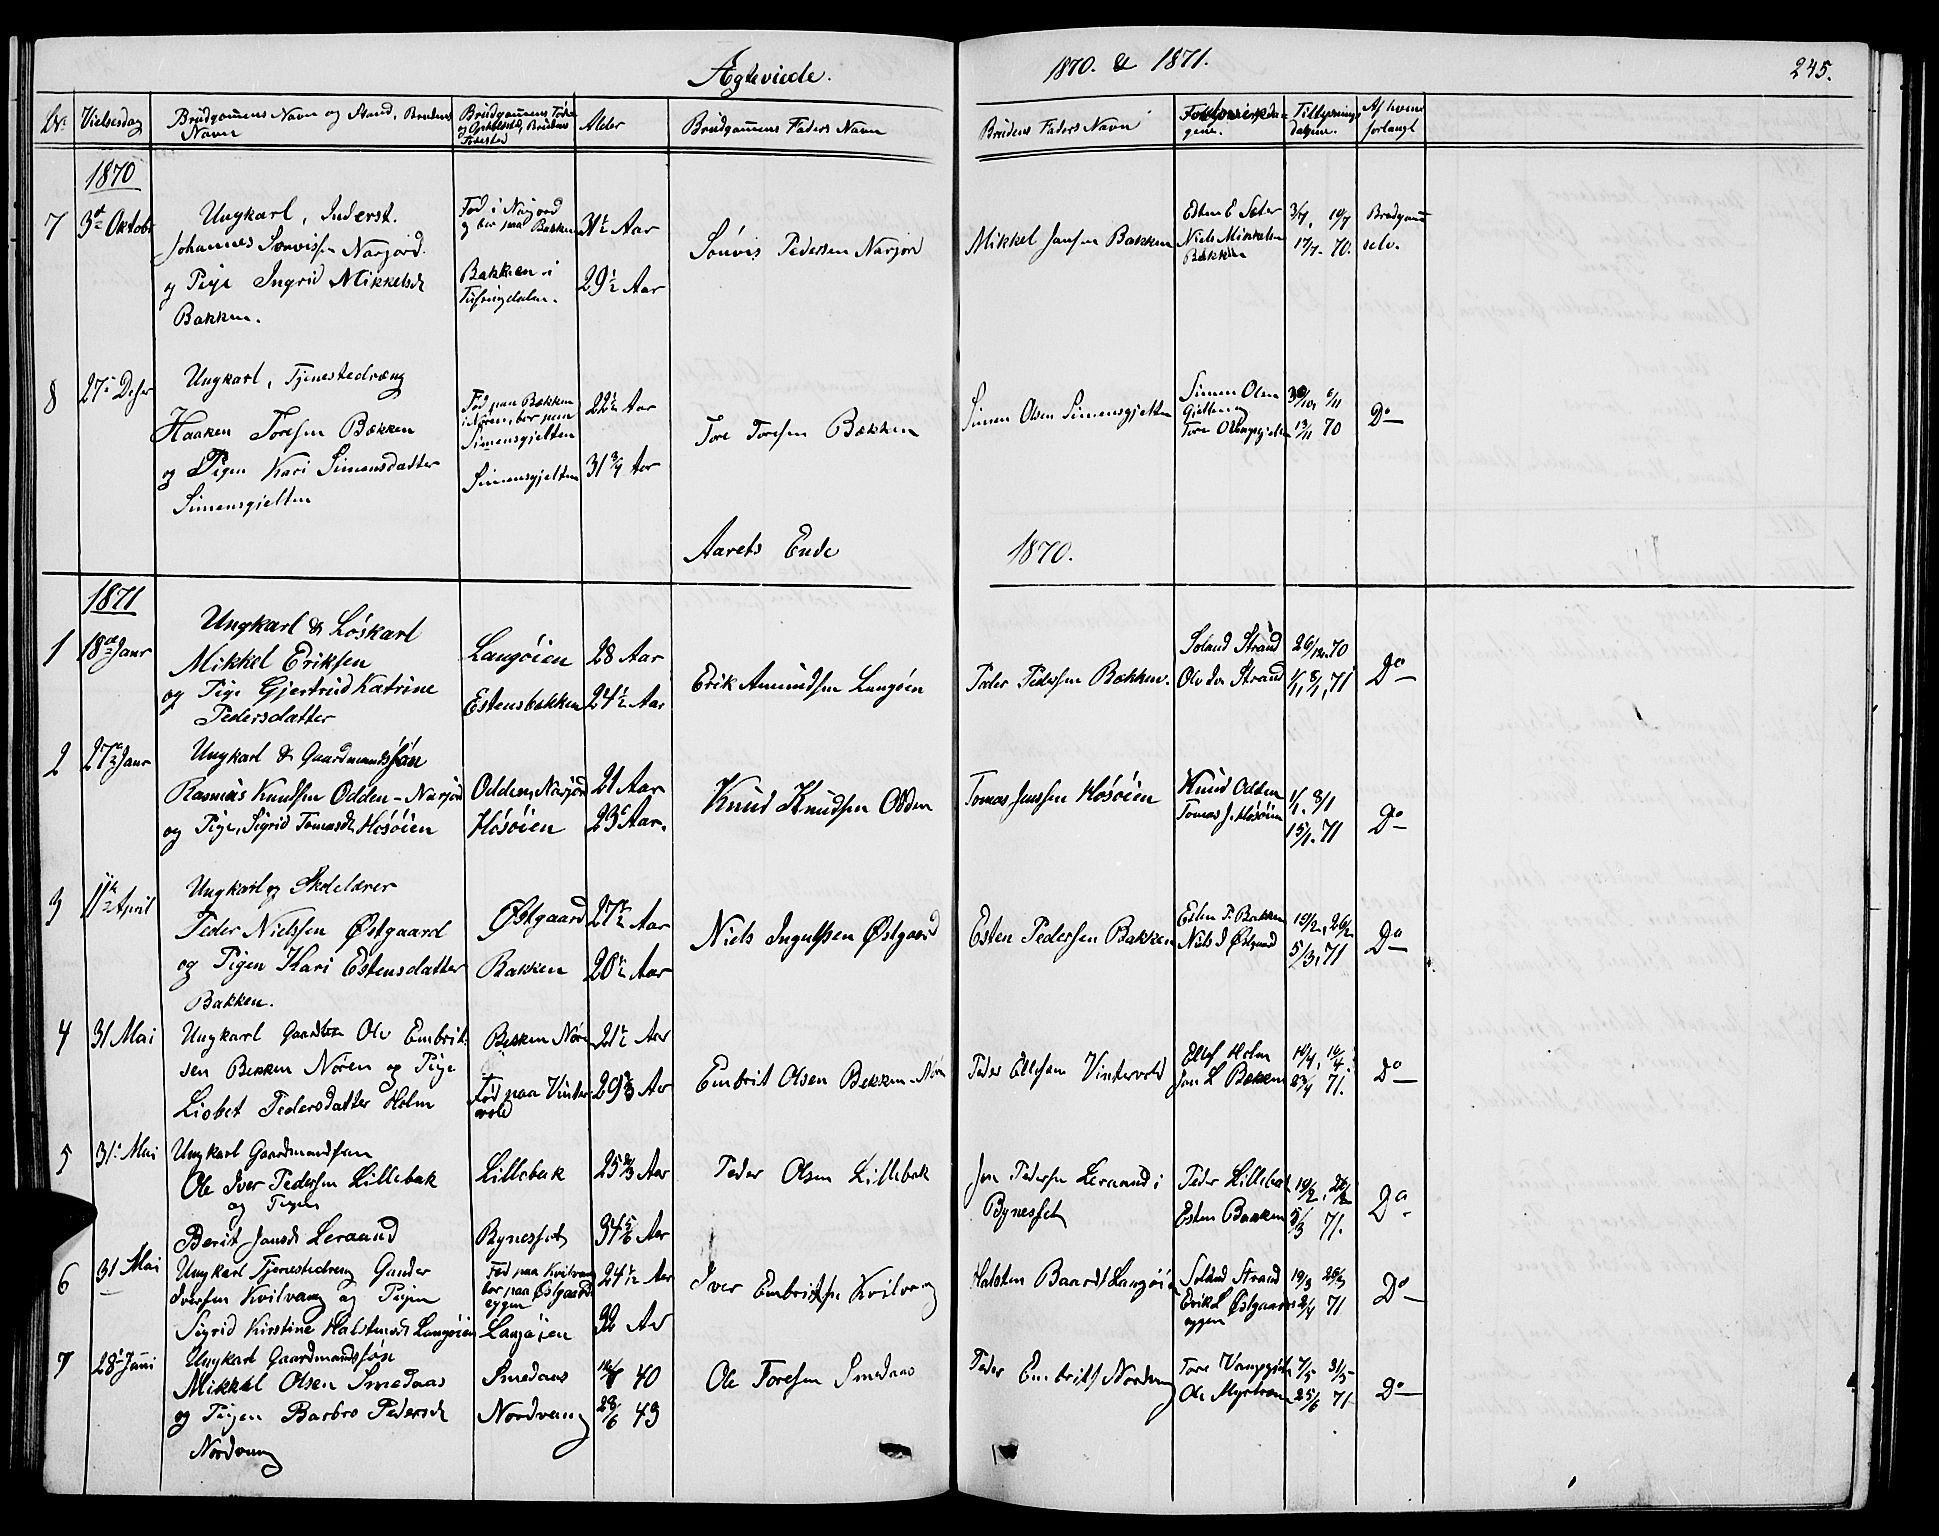 Ægteviede. 1870. & 1871. 245.
No. Vielsesdag Brudgommens Navn og Stand, Brudens Navn Brudgommens Føde og Brudens Fødested Alder Brudgommens Faders Navn Brudens Faders Navn Forloverne Tillysnings dagene. Af hvem forlangt
1870
7 3die Oktobr Ungkarl, Inderst. Fød i Narjord 31½ Aar Esten E Sæter 3/7, 10/7 Brudgom
Johannes Sørvissen Narjord. og bor paa Bakken Sørvis Pedersen Narjord Mikkel Jansen Bakken Niels Mikkelsen 17/7 70. selv.
og Pige Ingrid Mikkelsdr Bakken i 29½ Aar Bakken
Bakken. Tufsingdalen.
8 27de Desbr Ungkarl, Tjenestedræng Fød paa Bækken 22½ Aar Simen Olsen 30/10, 6/11
Haaken Toresen Bækken i Nøren, bor paa Tore Toresen Bækken Simen Olsen Simensgjelten Gjelten og 13/11 70 Do
og Pigen Kari Simensdatter Simensgjelten 31¾ Aar Tore
Simensgjelten Simensgjelten
Aarets Ende 1870.
1871
1 18de Janr Ungkarl & Løskarl Langøien 28 Aar Strand 26/12 70
Mikkel Eriksen Erik Amundsen Langøen Peder Pedersen Bækken. Strand 1/1, 8/1, 71 Do
og Pige Gjertrud Katrine Estensbækken 24½ Aar
Pedersdatter
2 27de Janr Ungkarl & Gaardmandssøn
Rasmus Knudsen Odden-Narjord Odden, Narjord 21 Aar Knud Knudsen Odden Tomas Jenssen Hosøien Knud Odden 1/1, 8/1
og Pige, Sigrid Tomasdr Hosøien Hosøien 23 Aar. Tomas J. Hosøien 15/1 71 Do
3 11te April Ungkarl og Skolelærer
Peder Nielssen Østgaard Østgaard 27½ Aar Niels Ingulfsen Østgaard Esten Pedersen Bakken Esten P. Bakken 19/2, 26/2
og Pigen Kari Estensdatter Bakken 20½ Aar Niels I Østgaard 5/3, 71 Do
Bakken.
4 31 Mai Ungkarl Ole Embrit- Bekken Nøren 21½ Aar Ellef Holm
sen Bekken Nøren og Pige Embrit Olsen Bekken-Nøren Peder Ellefsen Vintervold Jon L Bekken 71. Do
Lisbet Pedersdatter Holm Fød paa Vinter- 29 Aar
vold
5 31. Mai Ungkarl Gaardmandssøn
Ole Iver Pedersen Lillebak Lillebak 25 Aar Peder Olsen Lillebak Jon Pedersen Leraand i Peder Lillebak 19/2, 26/2
og Pigen Bynesset Esten Bakken 5/3 71. Do
Berit Jonsdr Leraand Bynesset 34 5/6 Aar
6 31 Mai Ungkarl Tjenestedreng Gunder Fød paa Kvilvang 24½ Aar Iver Embritsen Kvilvang Halsten Baards Langøien Strand 19/3 26/3
Iversen Kvilvang og Pigen bor paa Østgaards- Erik L Østgaards- 2/4 71 Do
eggen eggen
Sigrid Kirstine Halstensdr Langøien Langøien 32 Aar
7 28de Juni Ungkarl Gaardmandssøn Smedaas 40 Ole Toresen Smedaas Peder Embrits Nordvang Tore 7/5 31/5
Mikkel Olsen Smedaas Ole Myrtrøen 25/6 71 Do
og Pigen Barbro Pedersdr Nordvang 28/6 43
Nordvang